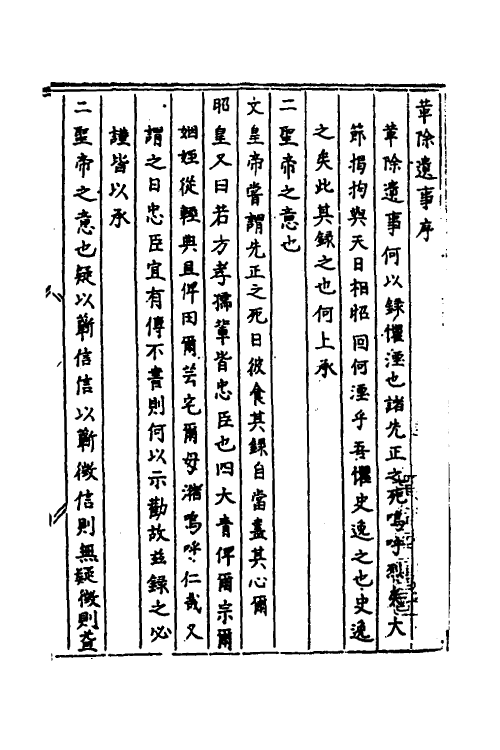 革除遺事序
革除遺事何以錄懼湮也諸先正之死嗚呼烈矣大
節揭拘與天日相昭回何湮乎吾懼史逸之也史逸
之矣此其錄之也何上承
二聖帝之意也
文皇帝嘗謂先正之死日彼食其錄自當盡其心爾
昭皇又曰若方孝孺輩皆忠臣也四大青俾爾宗爾
姻姪從輕典且俾田爾芸宅爾毋瀦嗚呼仁哉又
謂之日忠臣宜有傳不書則何以示勸故玆錄之必
謹皆以承
二聖帝之意也疑以蘄信信以蘄徵信則無疑徵則益